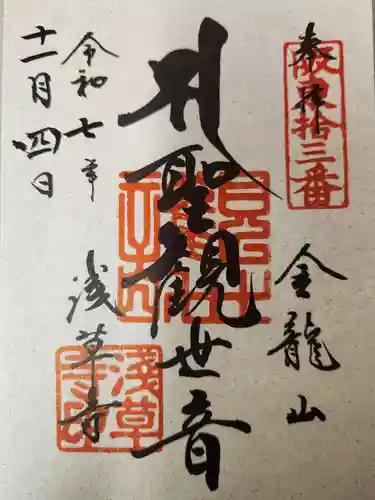 奉拝
坂東拾三番
金龍山
聖観世音
浅草寺
令和七年
十一月四日
淺草